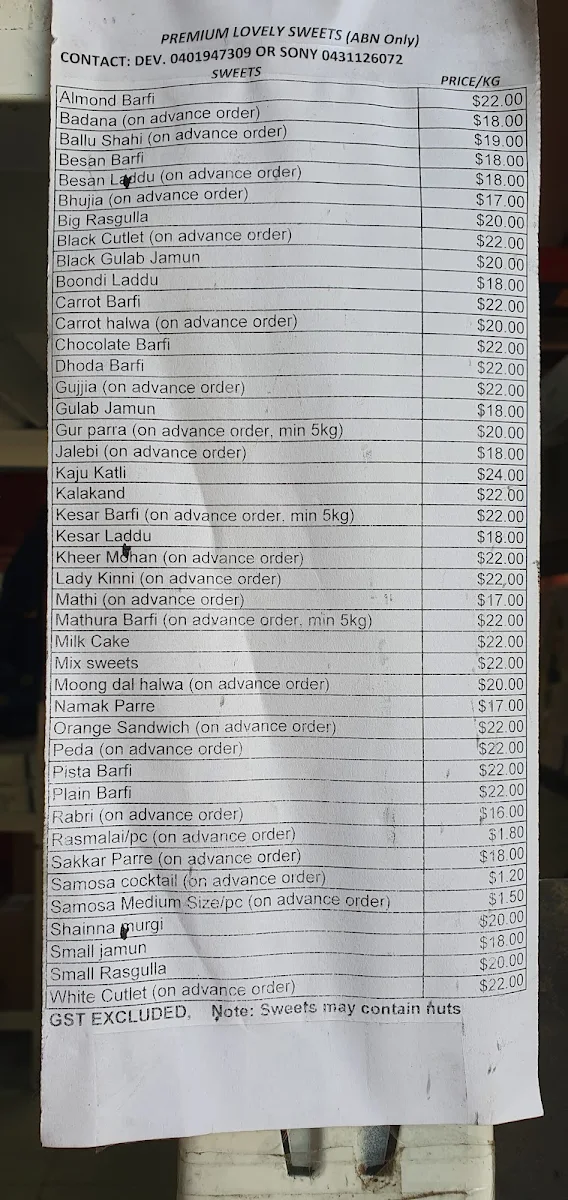 PREMIUM LOVELY SWEETS (ABN Only)
CONTACT: DEV. 0401947309 OR SONY 0431126072
SWEETS PRICE/KG
Almond Barfi $22.00
Badana (on advance order) $18.00
Ballu Shahi (on advance order) $19.00
Besan Barfi $18.00
Besan Laddu (on advance order) $18.00
Bhujia (on advance order) $17.00
Big Rasgulla $20.00
Black Cutlet (on advance order) $22.00
Black Gulab Jamun $20.00
Boondi Laddu $18.00
Carrot Barfi $22.00
Carrot halwa (on advance order) $20.00
Chocolate Barfi $22.00
Dhoda Barfi $22.00
Gujjia (on advance order) $22.00
Gulab Jamun $18.00
Gur parra (on advance order, min 5kg) $20.00
Jalebi (on advance order) $18.00
Kaju Katli $24.00
Kalakand $22.00
Kesar Barfi (on advance order. min 5kg) $22.00
Kesar Laddu $18.00
Kheer Mohan (on advance order) $22.00
Lady Kinni (on advance order) $22,00
Mathi (on advance order) $17.00
Mathura Barfi (on advance order. min 5kg) $22.00
Milk Cake $22.00
Mix sweets $22.00
Moong dal halwa (on advance order) $20.00
Namak Parre $17.00
Orange Sandwich (on advance order) $22.00
Peda (on advance order) $22.00
Pista Barfi $22.00
Plain Barfi $22.00
Rabri (on advance order) $16.00
Rasmalai/pc (on advance order) $1.80
Sakkar Parre (on advance order) $18.00
Samosa cocktail (on advance order) $1.20
Samosa Medium Size/pc (on advance order) $1.50
Shainna murgi $20.00
Small jamun $18.00
Small Rasgulla $20.00
White Cutlet (on advance order) $22.00
GST EXCLUDED, Note: Sweets may contain nuts